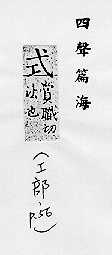 四聲篇海
式
賞職切
法也
(工部, P.56)